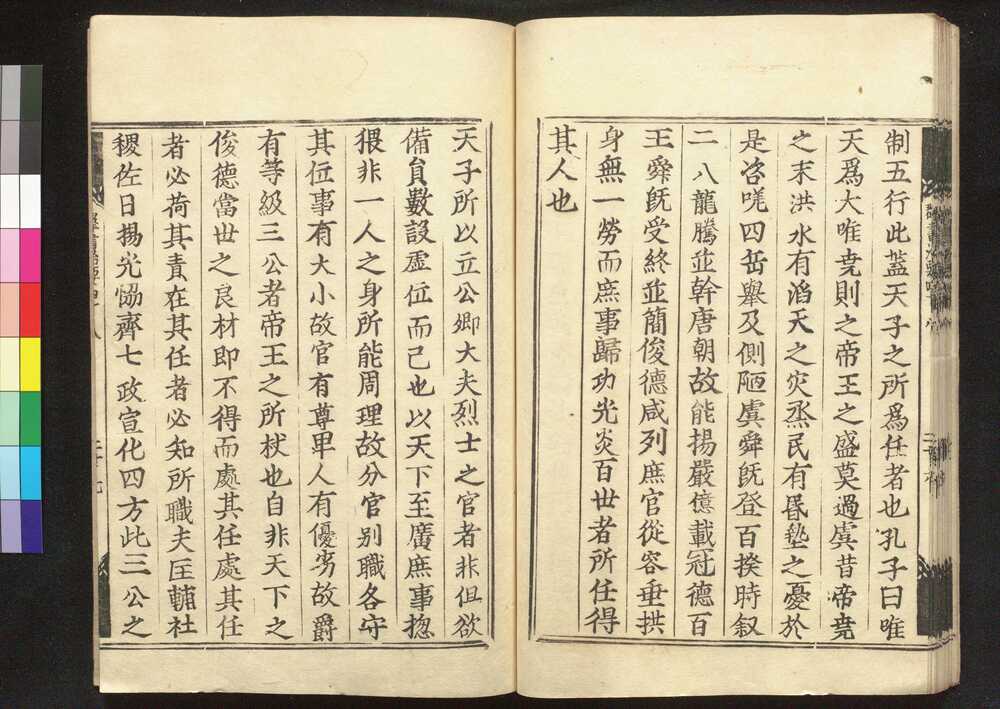 制五行此蓋天子之所爲任者也孔子曰唯
天爲大唯堯則之帝王之盛莫過虞昔帝堯
之末洪水有滔天之災烝民有昬墊之憂於
是咨嗟四岳舉及側陋虞舜旣登百揆時叙
二八龍騰並幹唐朝故能揚嚴億載冠德百
王舜旣受終並簡俊德咸列庶官從容垂拱
身無一勞而庶事歸功光炎百世者所任得
其人也
天子所以立公卿大夫烈士之官者非但欲
備負數設虛位而已也以天下至廣庶事揔
猥非一人之身所能周理故分官别職各守
其位事有大小故官有尊卑人有優劣故爵
有等級三公者帝王之所杖也自非天下之
俊德當世之良材即不得而處其任處其任
者必荷其責在其任者必知所職夫匡輔社
稷佐日揚光恊齊七政宣化四方此三公之